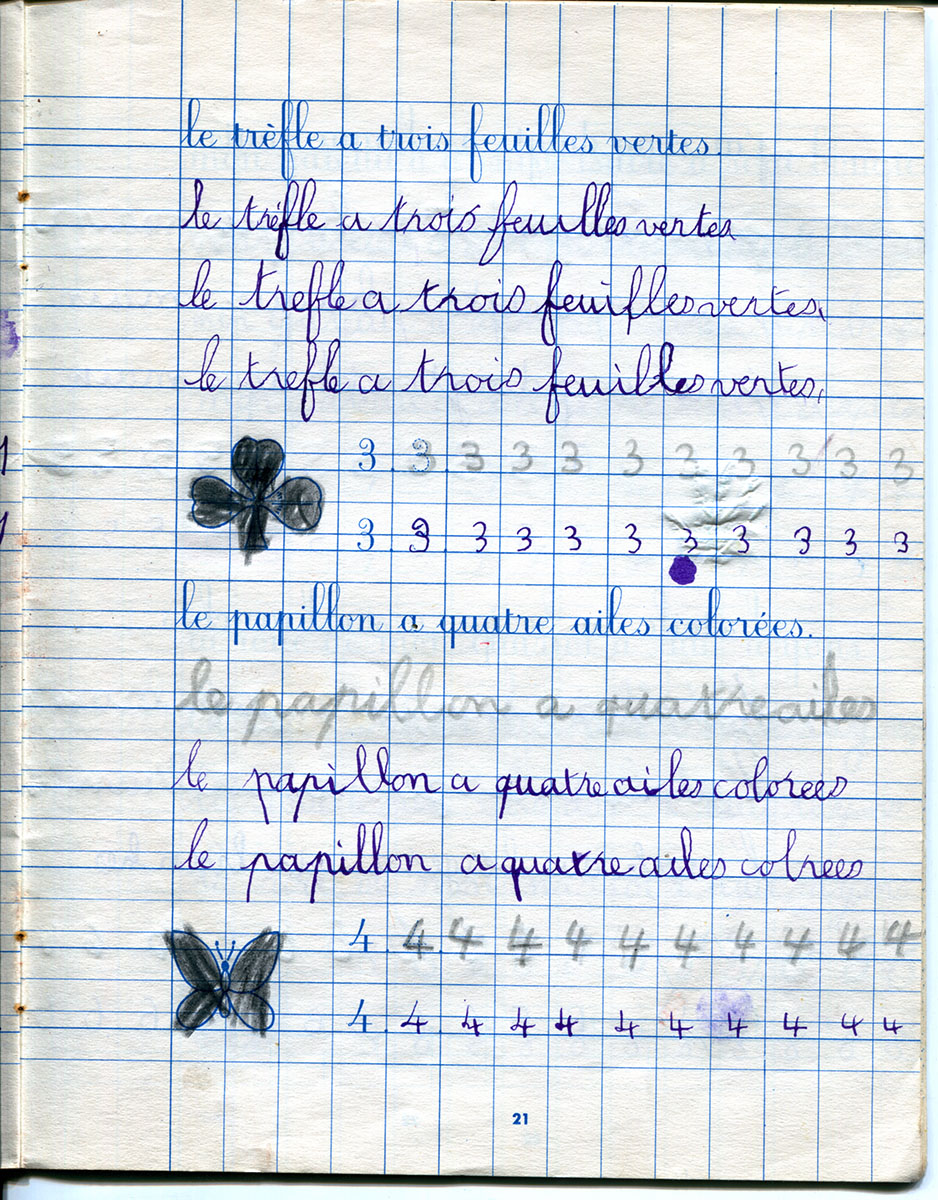 le trèfle a trois feuilles vertes.
le trèfle a trois feuilles vertes
le trefle a trois feuifles vertes.
le trefle a trois feuilles vertes.
3 3 3 3 3 3 3 3 3 3 3
3 3 3 3 3 3 3 3 3 3 3
le papillon a quatre ailes colorées.
le papillon a quatre ailes
le papillon a quatre ailes colorees
le papillon a quatre ailes colrees
4 4 4 4 4 4 4 4 4 4 4
4 4 4 4 4 4 4 4 4 4 4
21